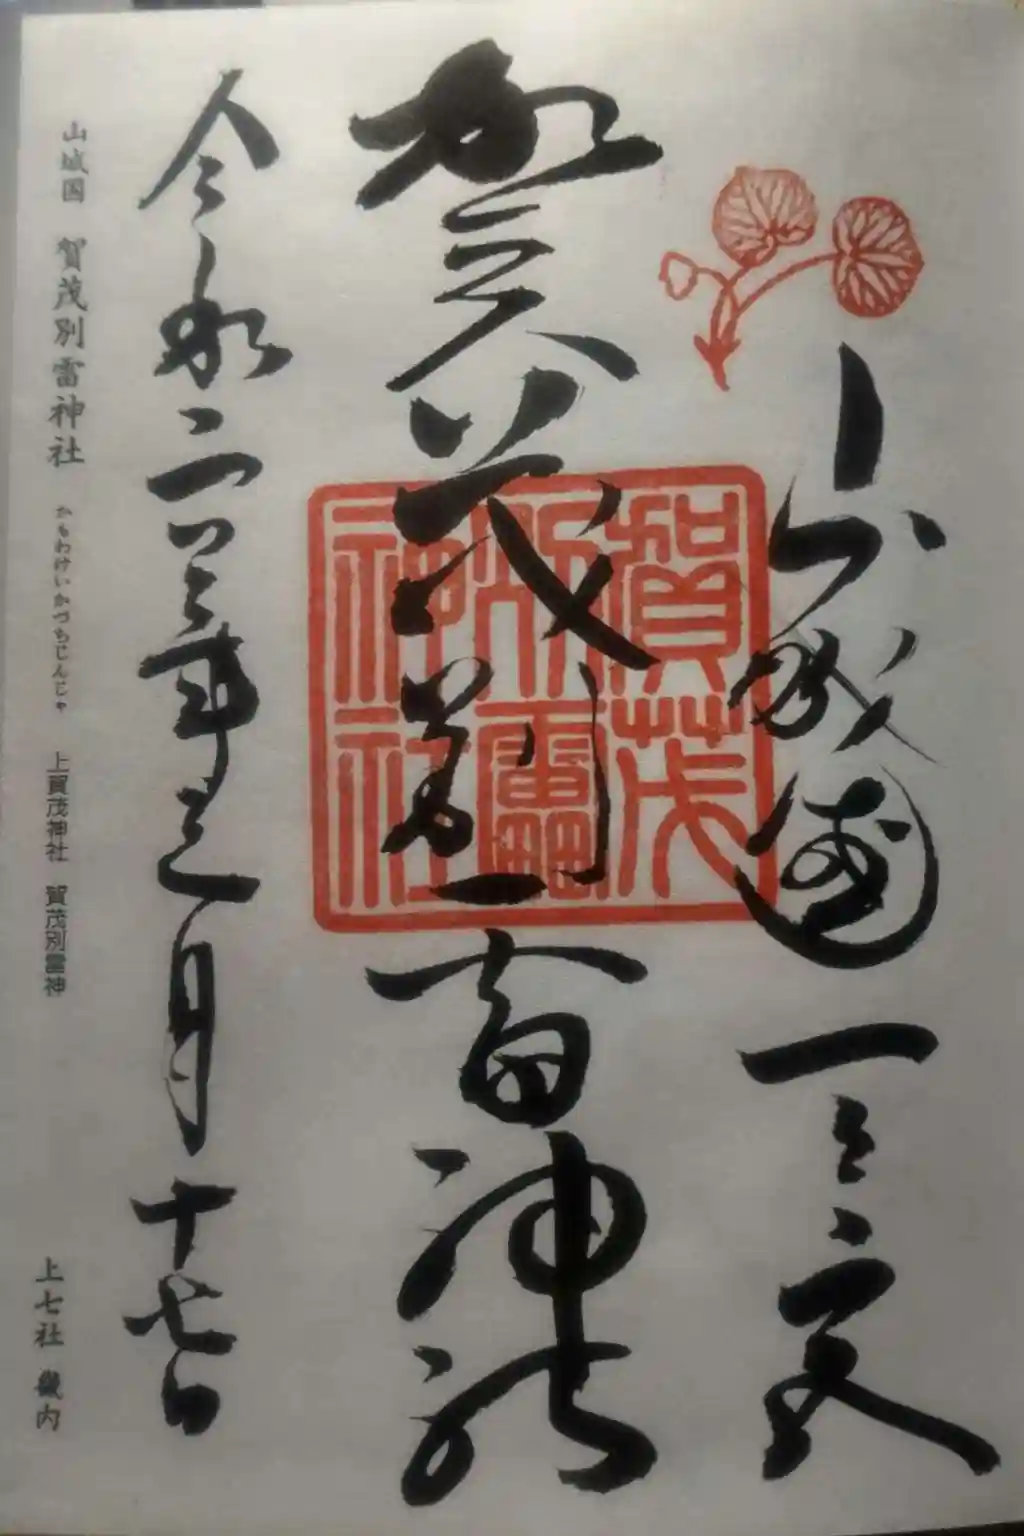 山城國一之宮
賀茂別雷神社
賀茂
別雷
神社
令和二年三月十七日
山城国 賀茂別雷神社 かもわけいかづちじんじゃ 上賀茂神社 賀茂別雷神 上七社 畿内